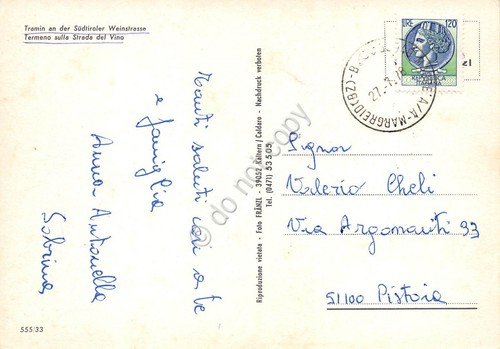 Tramin an der Südtiroler Weinstrasse
Termeno sulla Strada del Vino
Tanti saluti cari a te
e famiglia
Anna Antonella
Sabrina
555/33
Riproduzione vietata - Foto FRÄNZL - 39052 Kaltern / Caldaro - Nachdruck verboten
Tel. (0471) 53505
LIRE 120
27.7.78
A/A-MARGREID (BZ)-B
Signor
Valerio Cheli
Via Argonauti 93
51100 Pistoia
do not copy